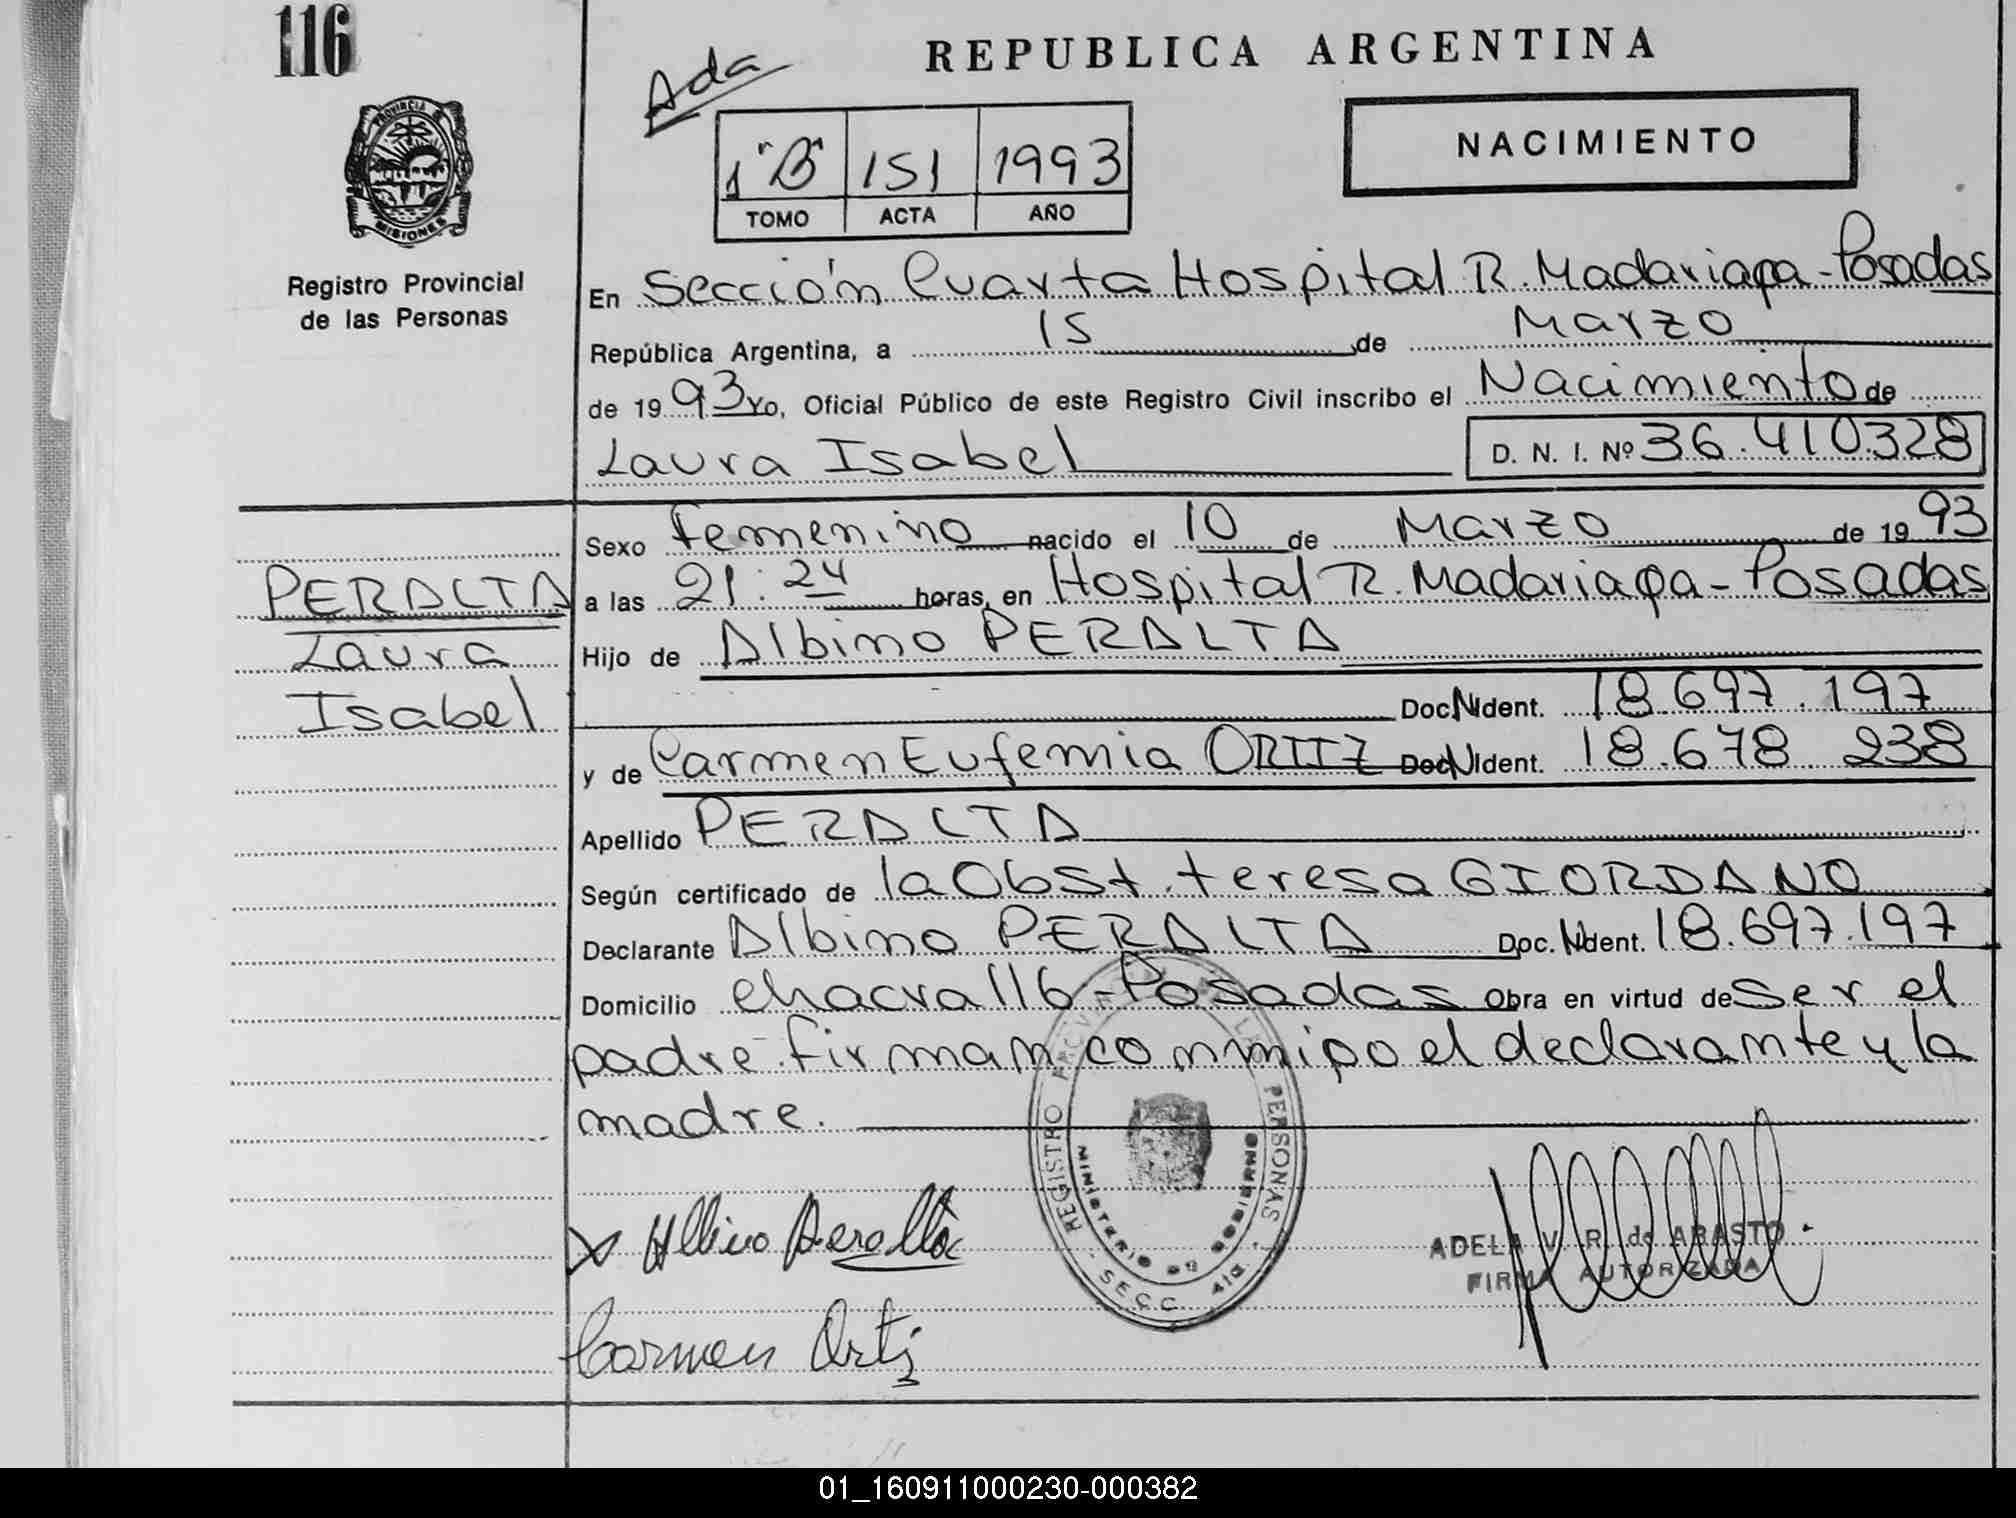 116
Ada
REPUBLICA ARGENTINA
PROVINCIA
MISIONES
Registro Provincial
de las Personas
1 "B" 151 1993
TOMO ACTA AÑO
NACIMIENTO
En Sección Cuarta Hospital R. Madariaga - Posadas
República Argentina, a 15 de Marzo
de 1993 Yo, Oficial Público de este Registro Civil inscribo el Nacimiento de
Laura Isabel D. N. I. Nº 36.410.328
Sexo femenino nacido el 10 de Marzo de 1993
a las 21:24 horas, en Hospital R. Madariaga - Posadas
PERALTA
Laura
Isabel
Hijo de Albino PERALTA
Doc. N Ident. 18.697.197
y de Carmen Eufemia ORTIZ Doc. N Ident. 18.678.238
Apellido PERALTA
Según certificado de la Obst. teresa GIORDANO
Declarante Albino PERALTA Doc. N Ident. 18.697.197
Domicilio chacra 116 - Posadas Obra en virtud de ser el
padre. firman conmigo el declarante y la
madre.
REGISTRO PERSONAS
MINISTERIO DE GOBIERNO
SECC. 4ta.
x Albino Peralta
Carmen Ortiz
ADELA V. R. de ABASTO
FIRMA AUTORIZADA
01_160911000230-000382